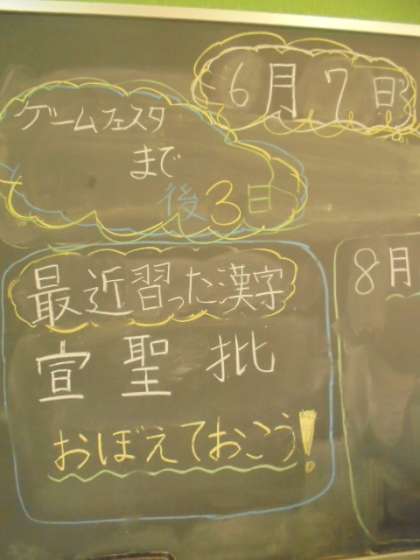 6月7日
ゲームフェスタ
まで
後3日
最近習った漢字
宣 聖 批
おぼえておこう!
8月